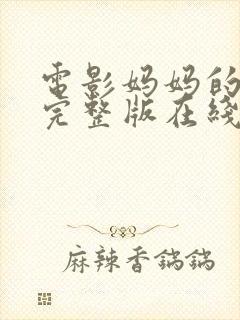 電影妈妈的
完整版在綫
麻辣香鍋鍋